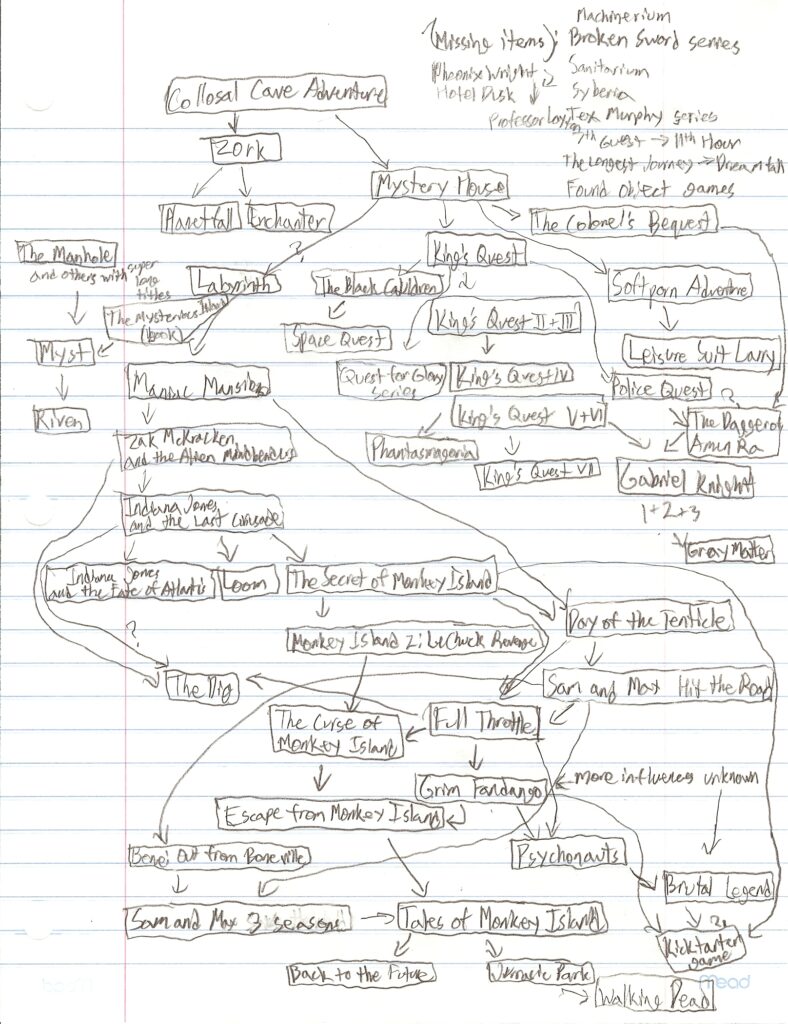 Machinerium
(Missing items): Broken Sword series
Phoenix Wright Sanitarium
Hotel Dusk Syberia
Professor Layton Tex Murphy series
7th Guest → 11th Hour
The Longest Journey → Dreamfall
Found object games
Collosal Cave Adventure
Zork
Mystery House
Planetfall Enchanter
The Colonel's Bequest
The Manhole
and others with super
long
titles
?
King's Quest
Labyrinth
The Black Cauldren
Softporn Adventure
The Mysterious Island
(book)
Space Quest
King's Quest II + III
Myst
Leisure Suit Larry
Maniac Mansion
Quest for Glory
series
King's Quest IV
Police Quest
?
Riven
King's Quest V + VI
The Dagger of
Amun Ra
Zak McKracken
and the Alien Mindbenders
Phantasmagoria
King's Quest VII
Gabriel Knight
1+2+3
Indiana Jones
and the Last Crusade
Gray Matter
Indiana Jones
and the Fate of Atlantis
Loom
The Secret of Monkey Island
Day of the Tenticle
?
Monkey Island 2: LeChuck Revenge
The Dig
Sam and Max Hit the Road
The Curse of
Monkey Island
Full Throttle
Grim Fandango
more influences unknown
Escape from Monkey Island
Bone: Out from Boneville
Psychonauts
Brutal Legend
Sam and Max 3 seasons
Tales of Monkey Island
?
Kicktarter
game
Back to the Future
Jurassic Park
Walking Dead
Mead